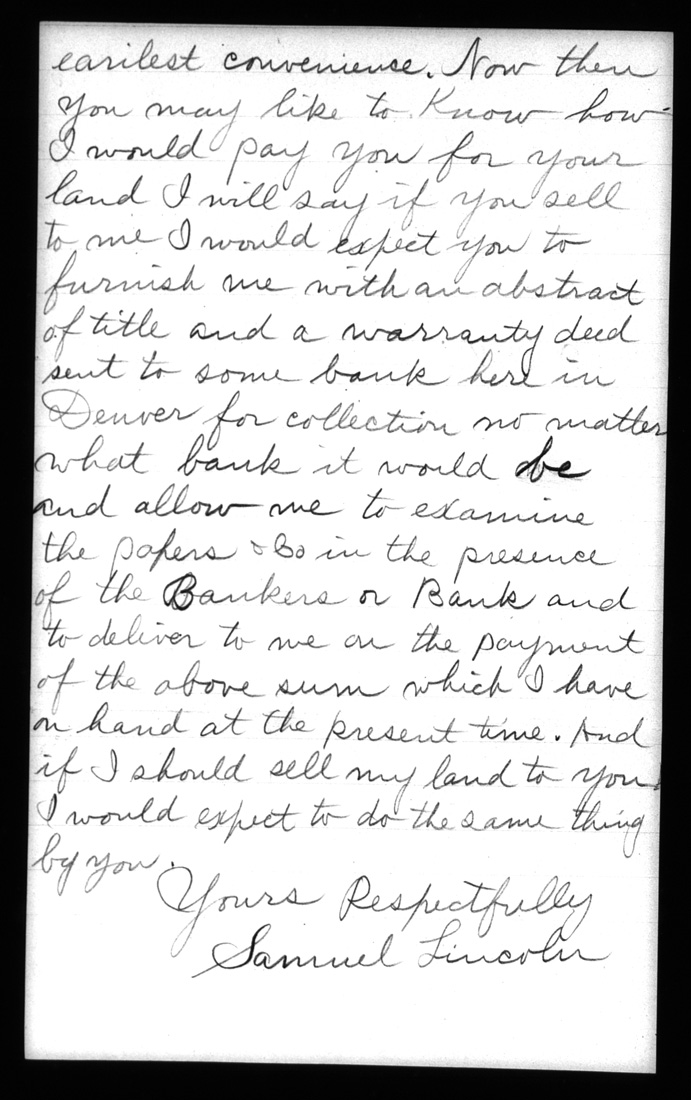 earilest convenience. Now then
you may like to Know how
I would pay you for your
land I will say if you sell
to me I would expect you to
furnish me with an abstract
of title and a warranty deed
sent to some bank here in
Denver for collection no matter
what bank it would be
and allow me to examine
the papers &c in the presence
of the Bankers or Bank and
to deliver to me on the payment
of the above sum which I have
on hand at the present time. And
if I should sell my land to you
I would expect to do the same thing
by you.
Yours Respectfully
Samuel Lincoln